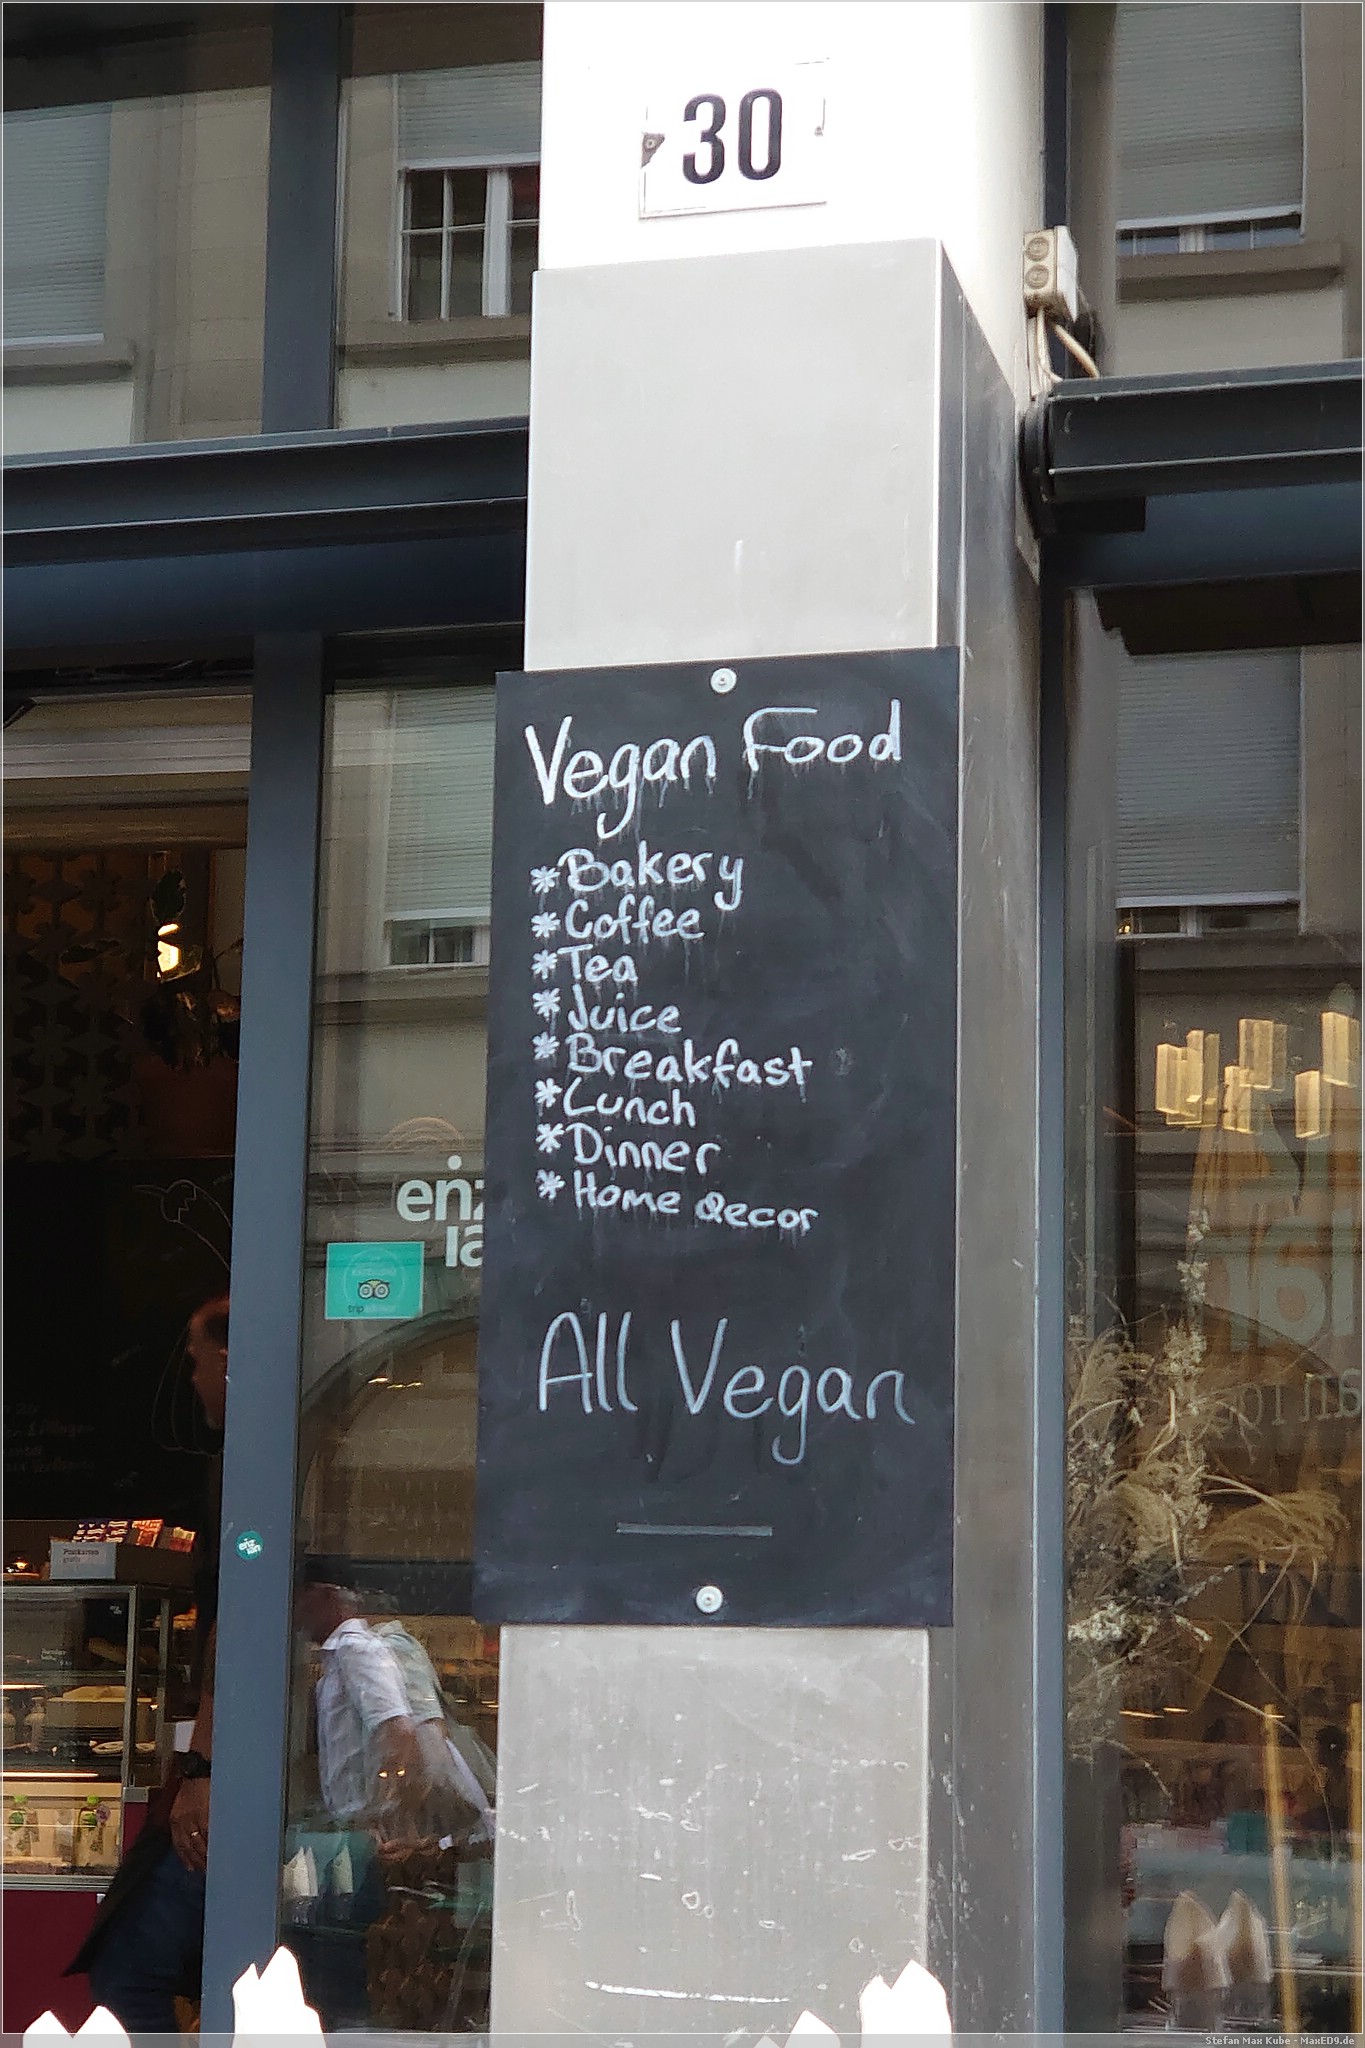 30
Vegan Food
*Bakery
*Coffee
*Tea
*Juice
*Breakfast
*Lunch
*Dinner
*Home decor
All Vegan
enz
ian
Postkarten
gratis
Stefan Max Kube - MaxED9.de